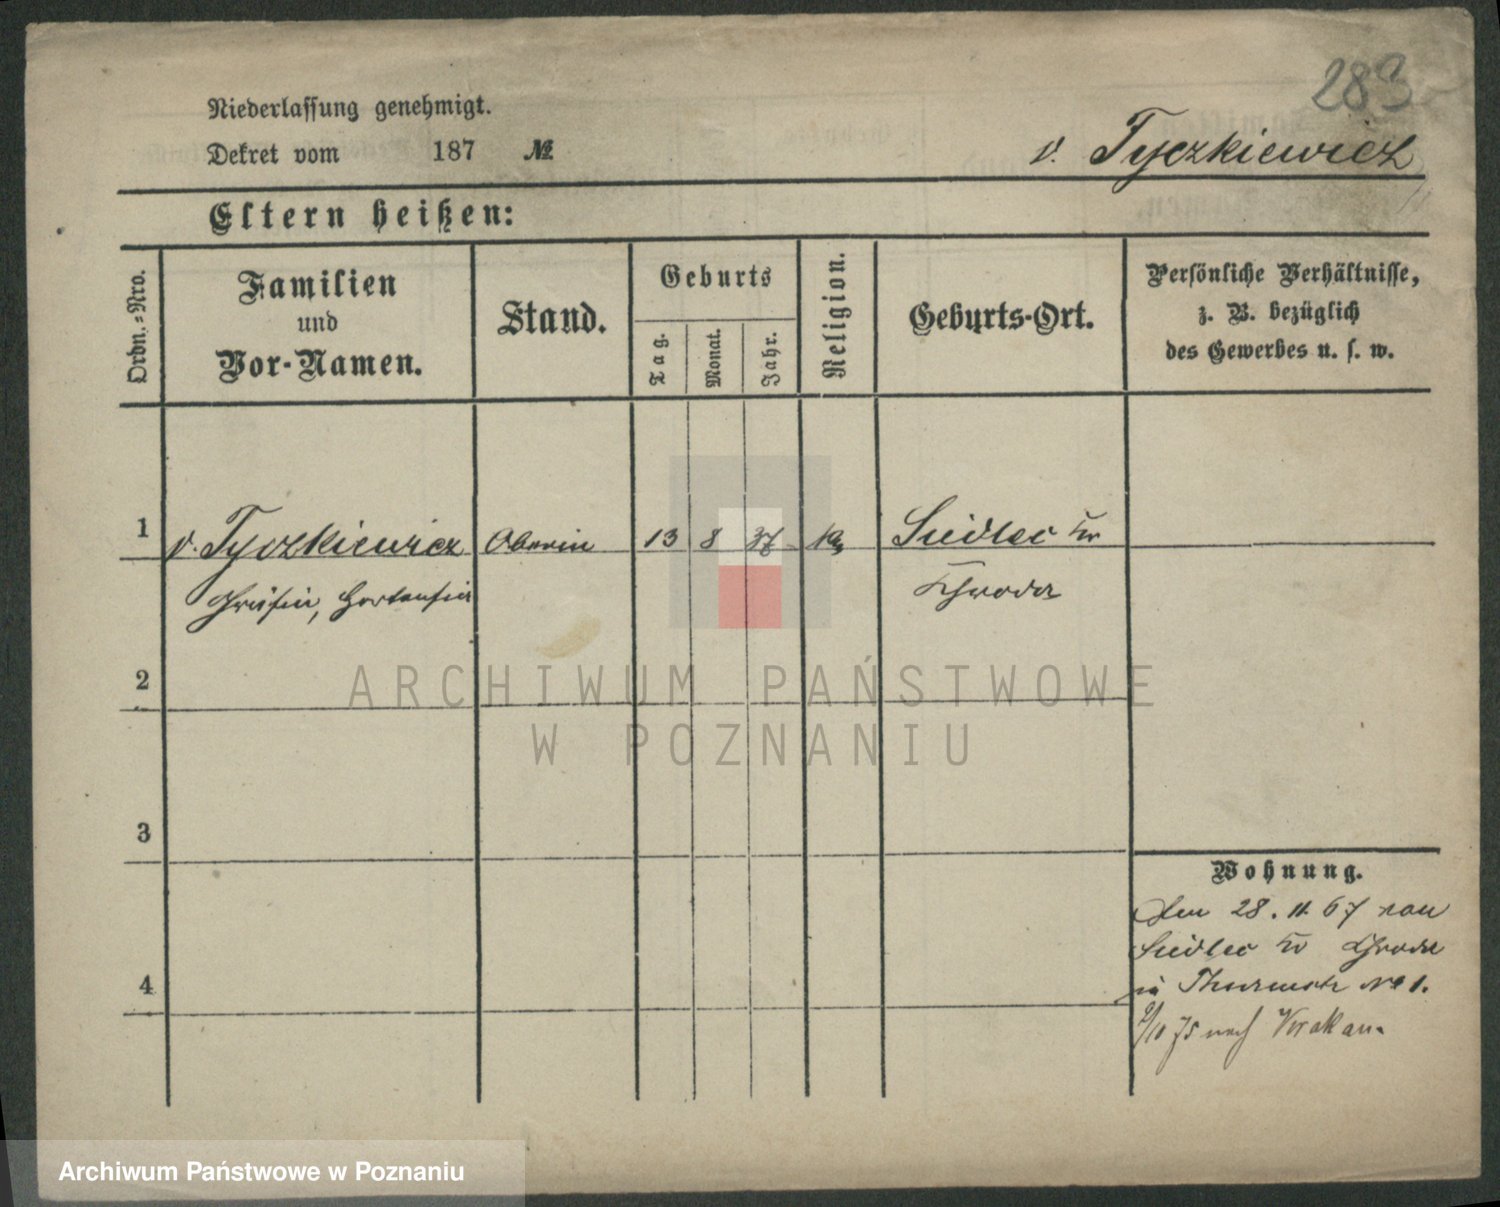 283
Niederlassung genehmigt.
Dekret vom 187 №
v. Tyczkiewicz
Eltern heißen:
Ordn.=Nro.
Familien
und
Vor-Namen.
Stand.
Geburts
Tag.
Monat.
Jahr.
Religion.
Geburts-Ort.
Persönliche Verhältnisse,
z. B. bezüglich
des Gewerbes u. s. w.
1 v. Tyczkiewicz Oberin 13 8 37 Siedlec Kr
Gräfin, Hortensia Schroda
2
3
4
Wohnung.
Den 28. 11. 67 von
Siedlec Kr Schroda
in Thurmstr No 1.
/11 75 nach Krakau.
ARCHIWUM PAŃSTWOWE
W POZNANIU
Archiwum Państwowe w Poznaniu